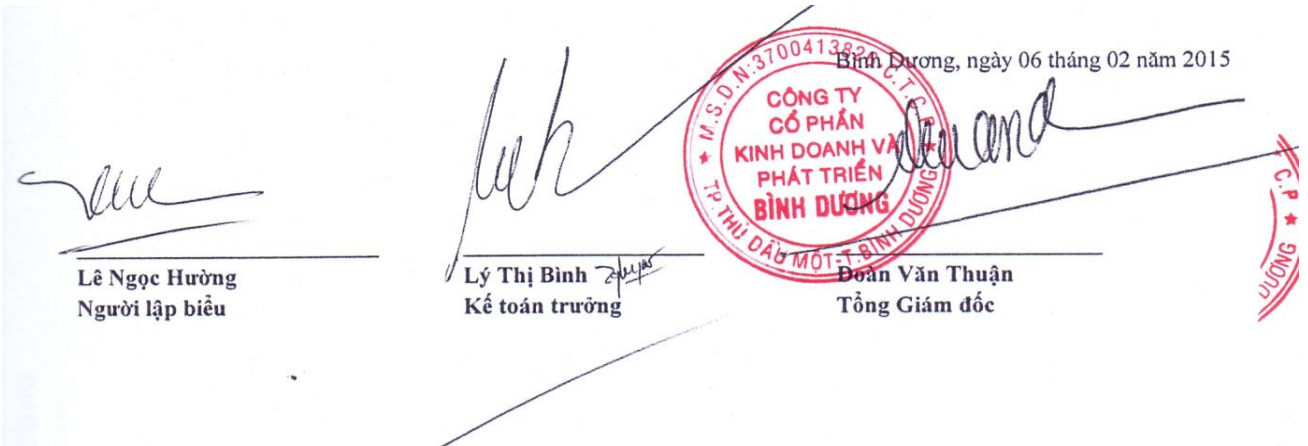 Bình Dương, ngày 06 tháng 02 năm 2015
CÔNG TY
CỔ PHẦN
KINH DOANH VÀ
PHÁT TRIỂN
BÌNH DƯƠNG
TP.THỦ DẦU MỘT-T.BÌNH DƯƠNG
Lê Ngọc Hường
Người lập biểu
Lý Thị Bình
Kế toán trưởng
Đoàn Văn Thuận
Tổng Giám đốc
C.P ★
DƯƠNG